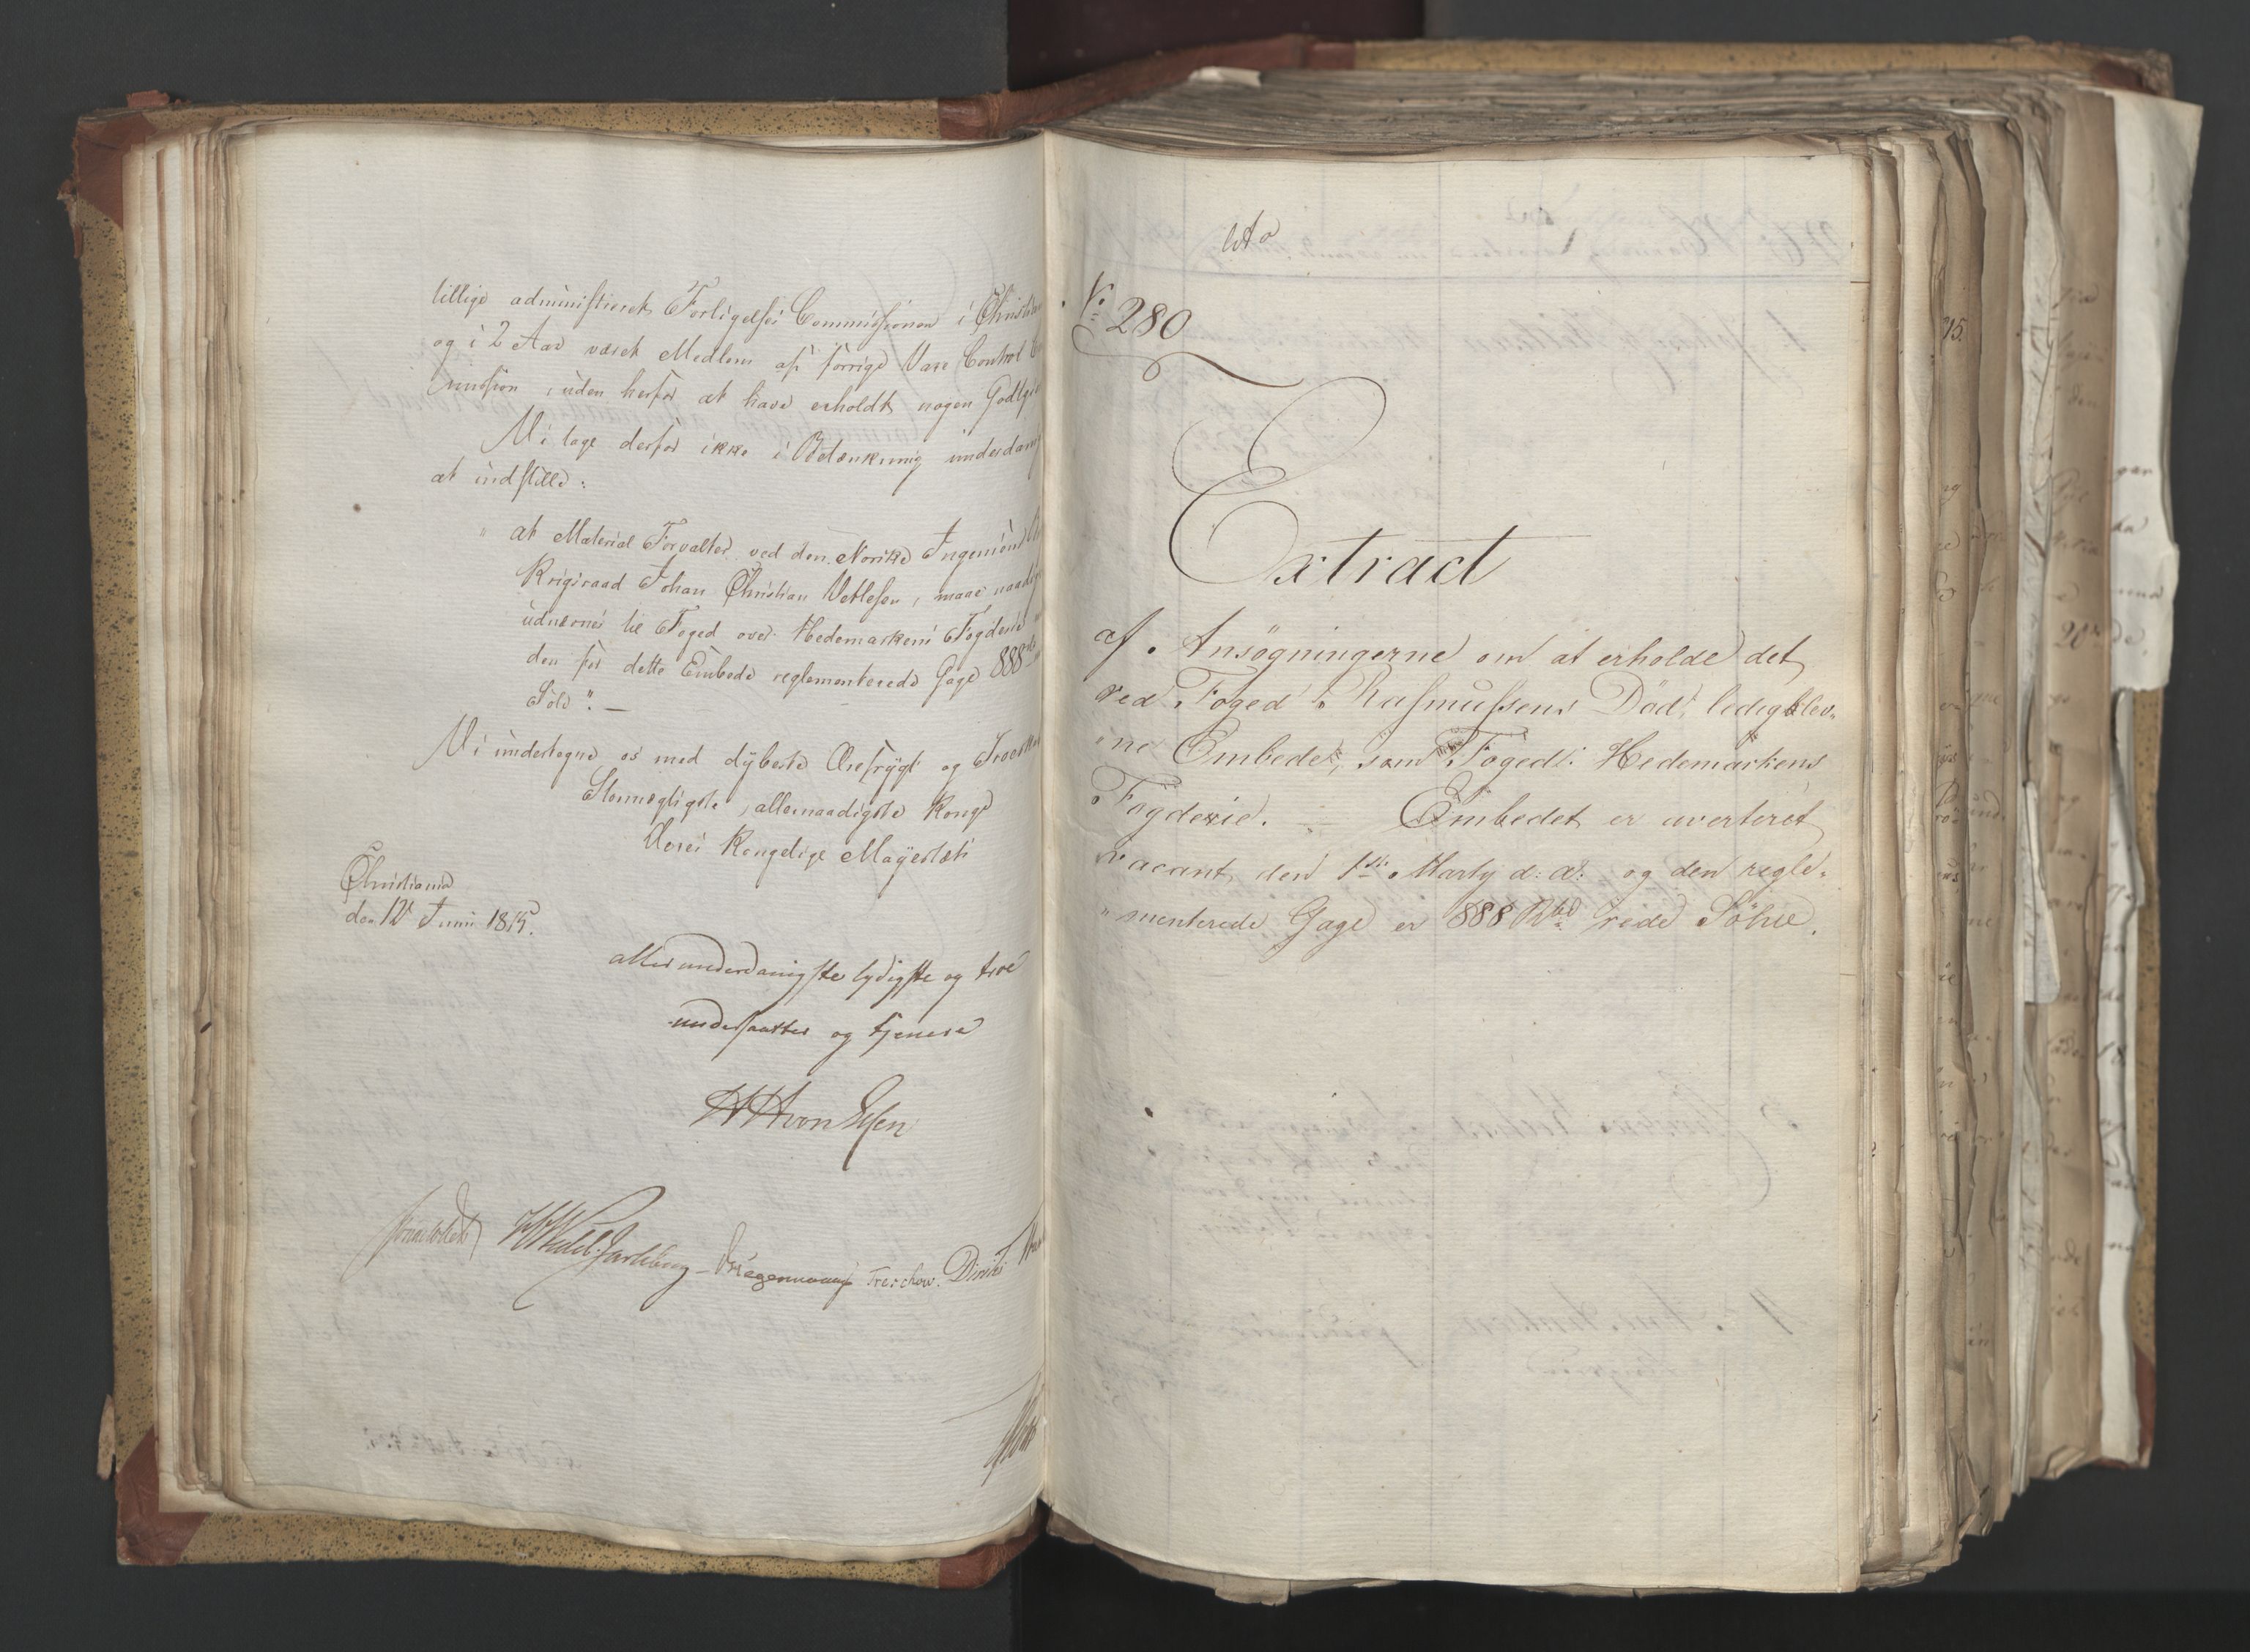 tillige administreret Forligelses Commissionen i Christian
og i 2 Aar været Medlem af forrige Vare Control
mission, uden herfor at have erholdt nogen Godtgj
Vi tage derfor ikke i Betænkning underdanig
at indstille:
" at Material Forvalter ved den Norske Ingenieur
Krigsraad Johan Christian Vetlesen, maae naadig
udnævnes til Foged over Hedemarkens Fogderie
den for dette Embede reglementerede Gage 888
Sölv". —
Vi undertegne os med dybeste Ærefrygt og Troeska
Stormægtigste, allernaadigste Konge
Deres Kongelige Majestæts
Christiania
den 12 Junii 1815.
allerunderdanigste lydigste og troe
undersaatter og tjenere
HHvon Essen
HWedel-Jarlsberg – Kriegermann Treschow. Diriks
No 280
Extract
af Ansögningerne om at erholde det
ved Foged Rasmussens Död, ledigblev-
"ne Embede, som Foged i Hedemarkens
Fogderie. — Embedet er averteret
vacant den 1ste Marty d: A: og den regle-
"menterede Gage er 888 Rbd rede Sölve.